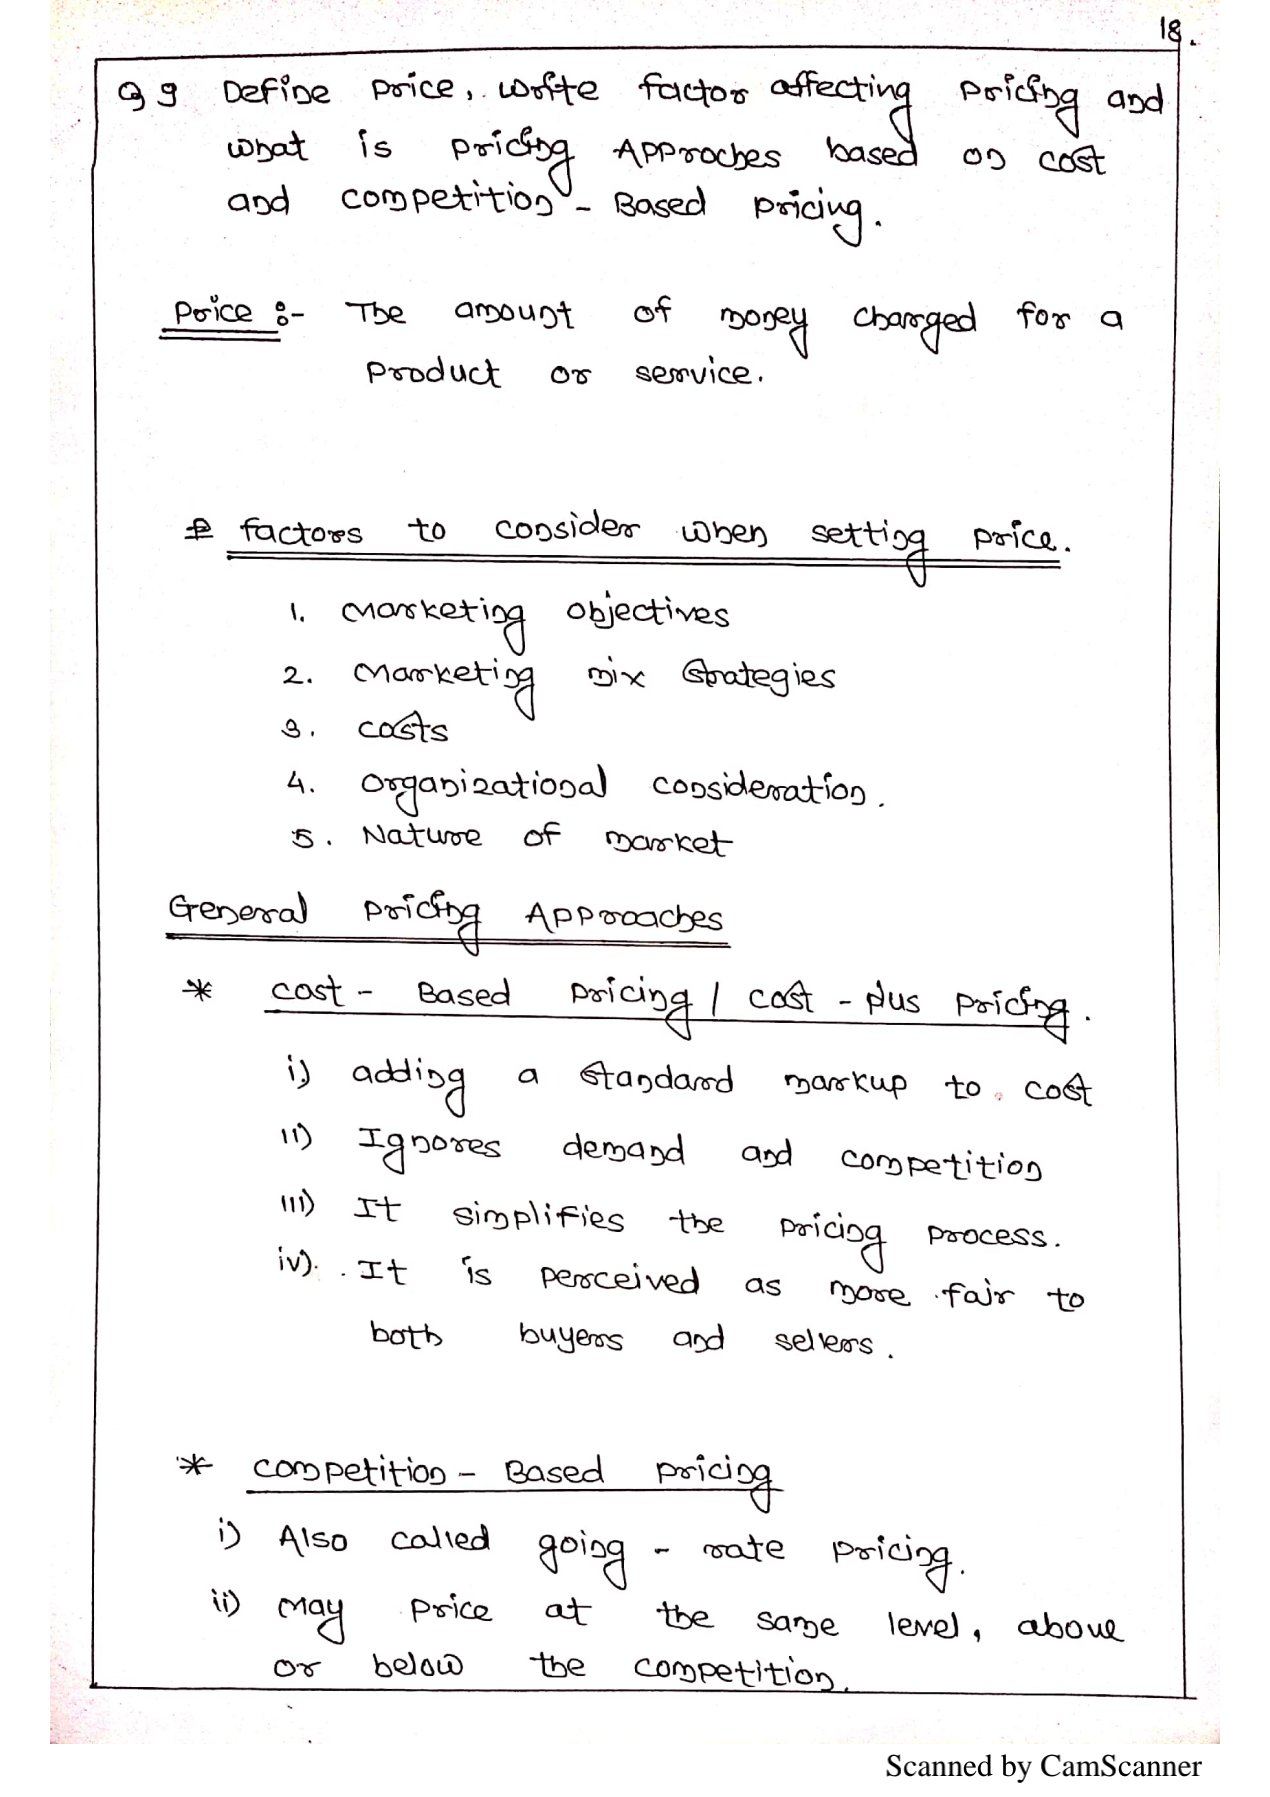 18.
Q 9 Define price, write factor affecting pricing and
what is pricing Approches based on cost
and competition - Based pricing.
Price :- The amount of money charged for a
product or service.
# factors to consider when setting price.
1. Marketing objectives
2. Marketing mix strategies
3. costs
4. organizational consideration.
5. Nature of market
General pricing Approaches
* cost - Based pricing / cost - plus pricing.
i) adding a standard markup to cost
ii) Ignores demand and competition
iii) It simplifies the pricing process.
iv). It is perceived as more fair to
both buyers and sellers.
* competition - Based pricing
i) Also called going - rate pricing.
ii) may price at the same level, above
or below the competition.
Scanned by CamScanner